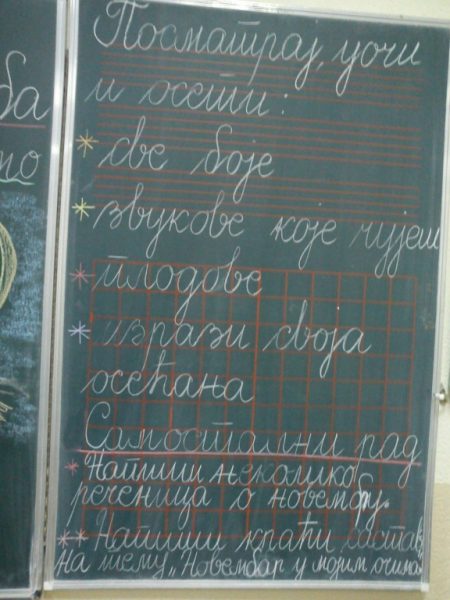 ба
то
Посматрај, уочи
и осети:
* све боје
* звукове које чујеш
* плодове
* изрази своја
осећања
Самостални рад
* Напиши неколико
реченица о новембру.
** Напиши краћи састав
на тему „Новембар у мојим очима